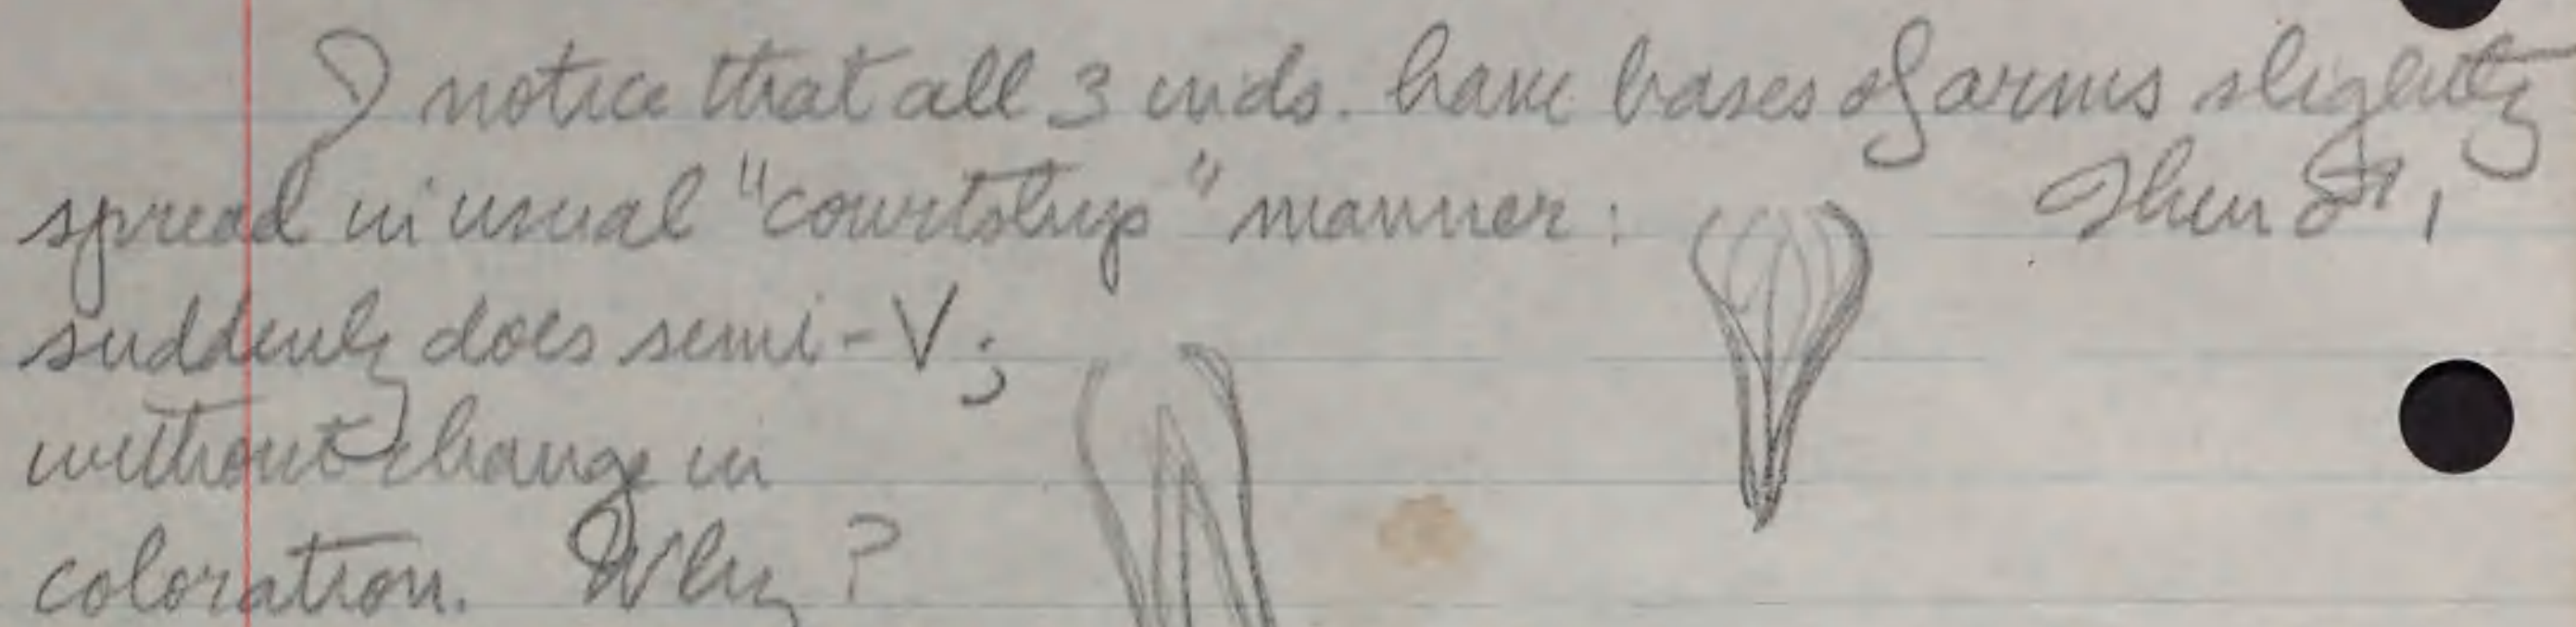 I notice that all 3 inds. have bases of arms slightly
spread in usual "courtship" manner: Then ♂,
suddenly does semi-V;
without change in
coloration. Why?